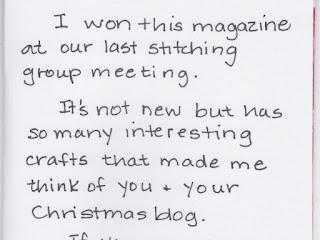 I won this magazine
at our last stitching
group meeting.
It's not new but has
so many interesting
crafts that made me
think of you + your
Christmas blog.